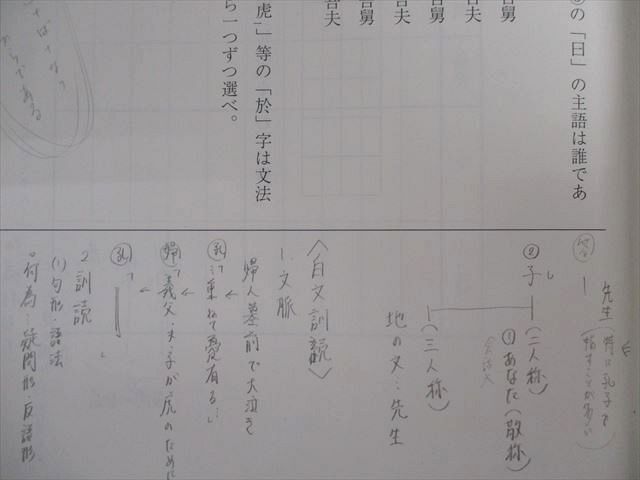 の「曰」の主語は誰であ
吾舅
吾夫
吾舅
吾夫
吾舅
吾夫
虎」等の「於」字は文法
ら一つずつ選べ。
である
先生(特に孔子を
指すことが多い)
②子
(二人称)
①あなた(敬称)
会話文
(三人称)
地の文…先生
〈白文訓読〉
1.文脈
婦人墓前で大泣き
孔:「…重ねて憂有る…
婦:「義父・夫・子が虎のために
孔:「
2 訓読
(1)句形・語法
何為…疑問形・反語形